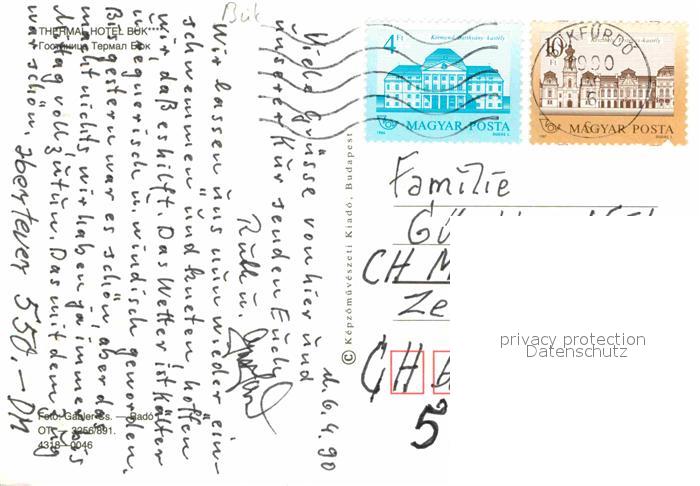 THERMAL HOTEL BÜK****
Гостиница Термал Бюк
Bük
d. 6.4.90
Viele Grüsse von hier und
unserer Kur senden Euch
Ruth u.
Wir lassen uns nun wieder ein-
schwemmen und kneten, hoffen
wir, daß es hilft. Das Wetter ist kälter
u. regnerisch u. windisch geworden.
Bis gestern war es schön, aber das
macht nichts, wir haben ja immer bis
Mittag voll zu tun. Das mit dem Zug
war schön, aber teuer 550.- DM
Foto: Gabler ss. — Radó
OT — 3256/891.
4318—0046
© Képzőművészeti Kiadó, Budapest
4 Ft
Körmend Batthyány-kastély
MAGYAR POSTA
1986
10 Ft
MAGYAR POSTA
BÜKFÜRDŐ
1990
Familie
CH M
Ze
CH 6
5
privacy protection
Datenschutz